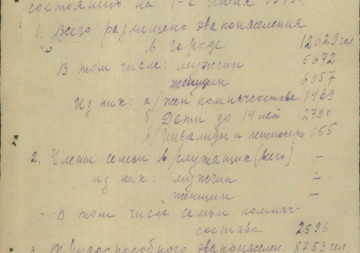 состоянию на 1-е июня
1. Всего размещено эваконаселения
в городе 12029 чел
В том числе: мужчин 5072
женщин 6957
Из них: а/ жен комначсостава 1469
б Дети до 14 лет 2790
в/ Инвалиды и пенсионер 155
2. Члены семьи в/служащих (всего) –
из них: мужчин –
женщин –
В том числе семьи комнач-
состава 2596
3. эваконаселен. 8753 чел.